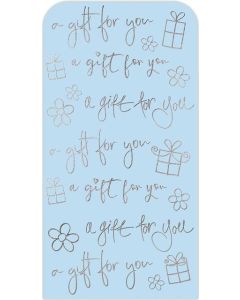 a gift for you
a gift for you
a gift for you
a gift for you
a gift for you
a gift for you
a gift for you